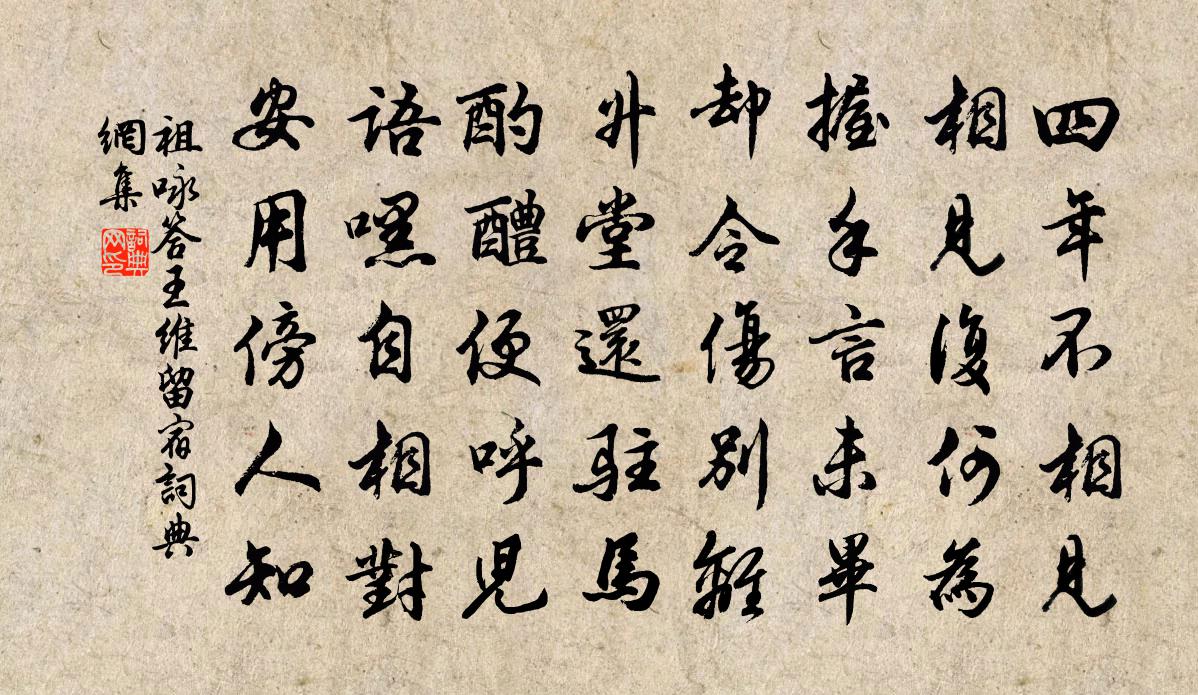 四年不相見
相見復何為
握手言未畢
却令傷別離
升堂還駐馬
酌醴便呼兒
語嘿自相對
安用傍人知
祖咏答王維留宿詞典
網集
詞典
网印